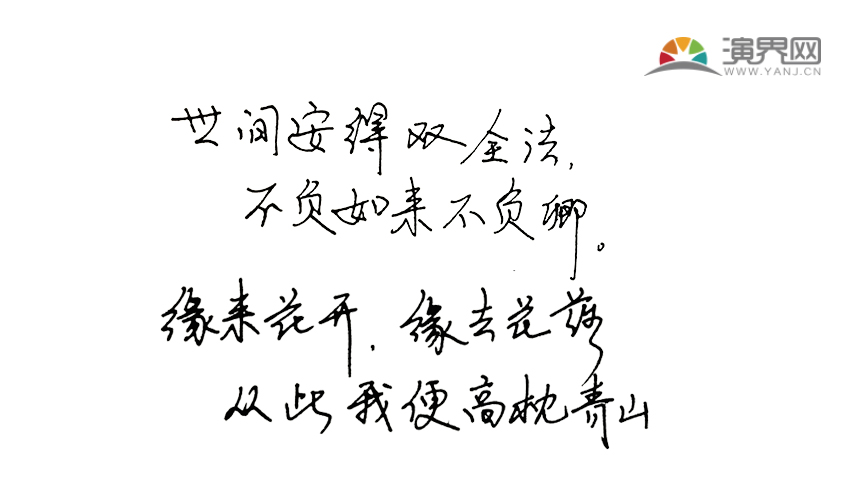 演界网
WWW.YANJ.CN
世间安得双全法,
不负如来不负卿。
缘来花开,缘去花落
从此我便高枕青山